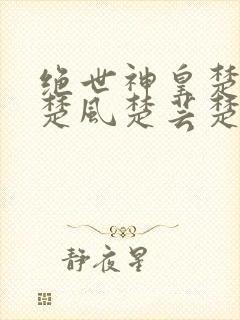 绝世神皇楚
楚风楚芸楚
静夜星